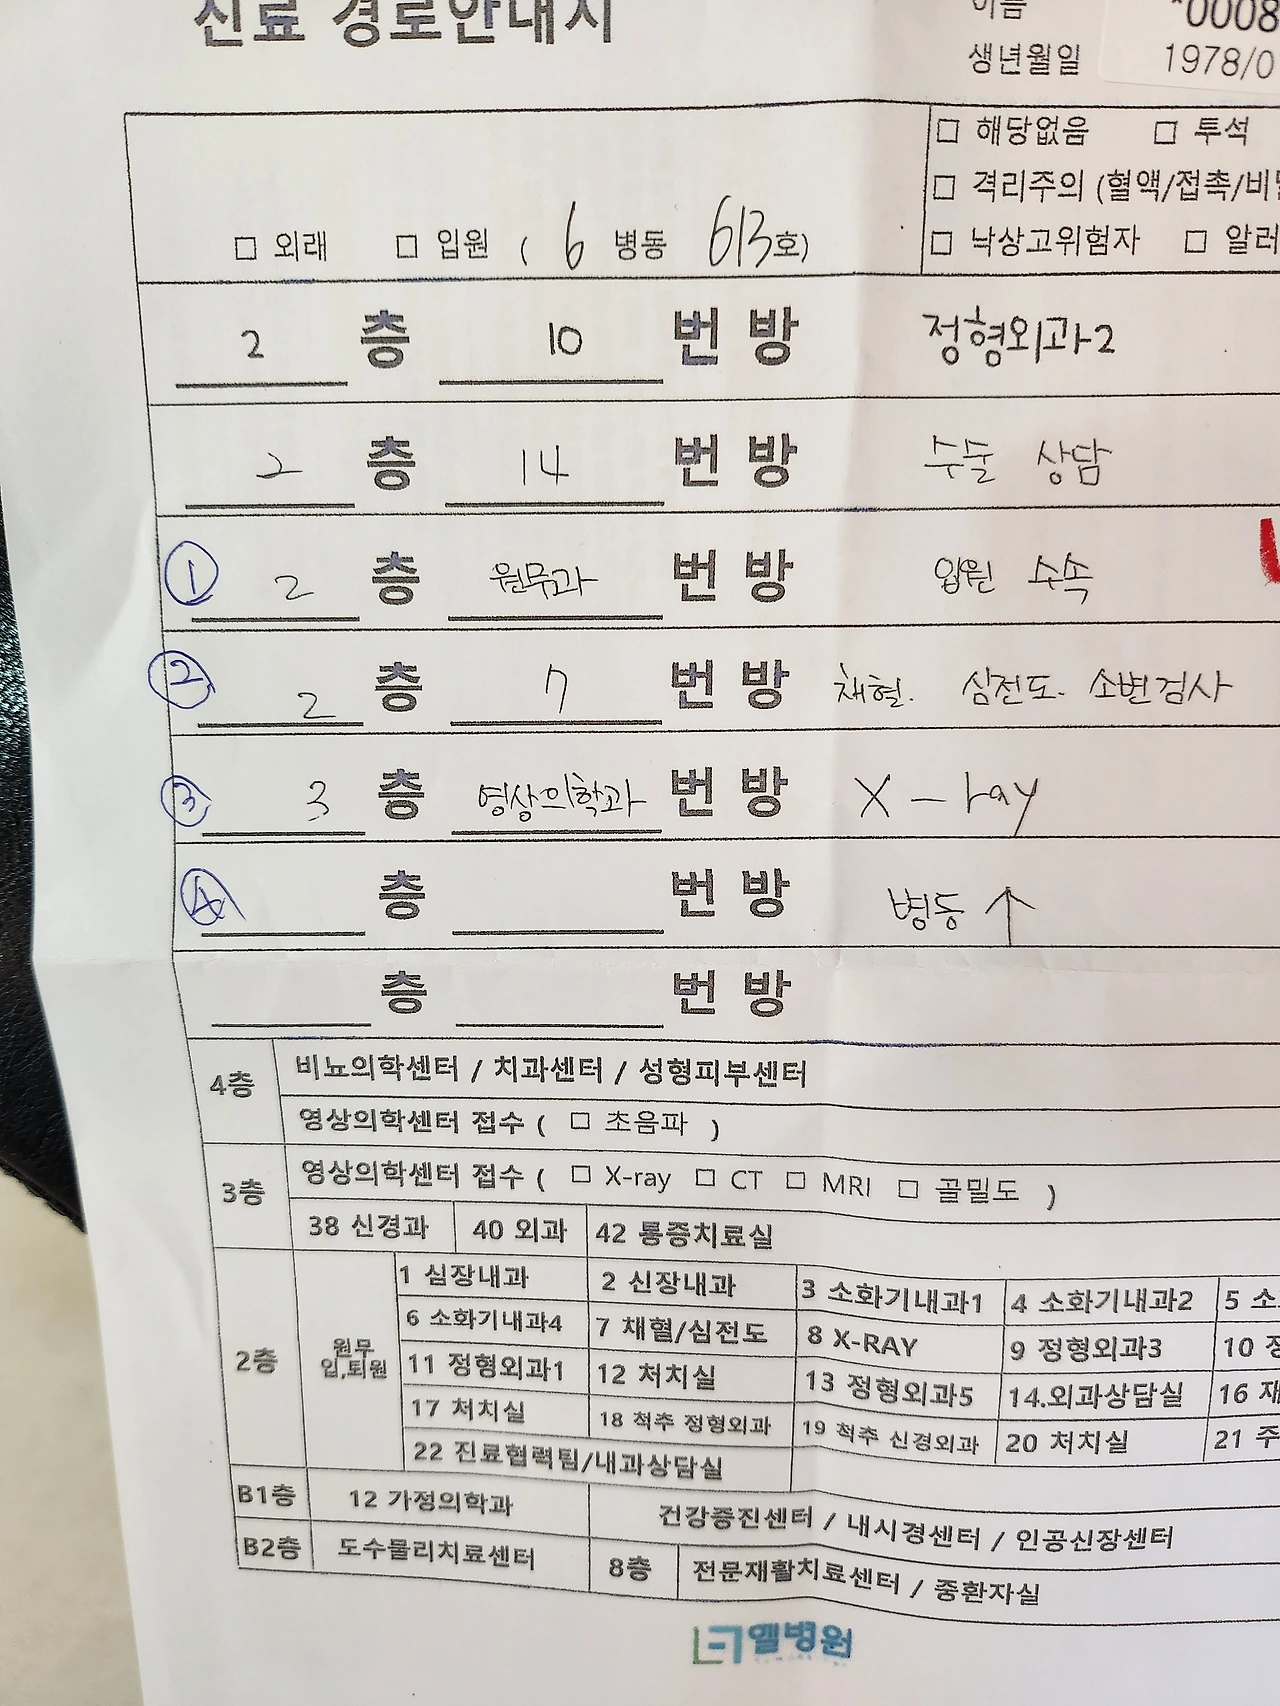 진료 경로안내지
이름 *0008
생년월일 1978/0
□ 해당없음 □ 투석
□ 격리주의 (혈액/접촉/비말
□ 외래 □ 입원 ( 6 병동 613호)
□ 낙상고위험자 □ 알레
2 층 10 번 방 정형외과2
2 층 14 번 방 수술 상담
① 2 층 원무과 번 방 입원 수속
② 2 층 7 번 방 채혈. 심전도. 소변검사
③ 3 층 영상의학과 번 방 X-ray
④ 층 번 방 병동 ↑
층 번 방
4층 비뇨의학센터 / 치과센터 / 성형피부센터
영상의학센터 접수 ( □ 초음파 )
3층 영상의학센터 접수 ( □ X-ray □ CT □ MRI □ 골밀도 )
38 신경과 40 외과 42 통증치료실
2층 원무 입,퇴원
1 심장내과 2 신장내과 3 소화기내과1 4 소화기내과2 5 소
6 소화기내과4 7 채혈/심전도 8 X-RAY 9 정형외과3 10 정
11 정형외과1 12 처치실 13 정형외과5 14.외과상담실 16 재
17 처치실 18 척추 정형외과 19 척추 신경외과 20 처치실 21 주
22 진료협력팀/내과상담실
B1층 12 가정의학과 건강증진센터 / 내시경센터 / 인공신장센터
B2층 도수물리치료센터 8층 전문재활치료센터 / 중환자실
엘병원